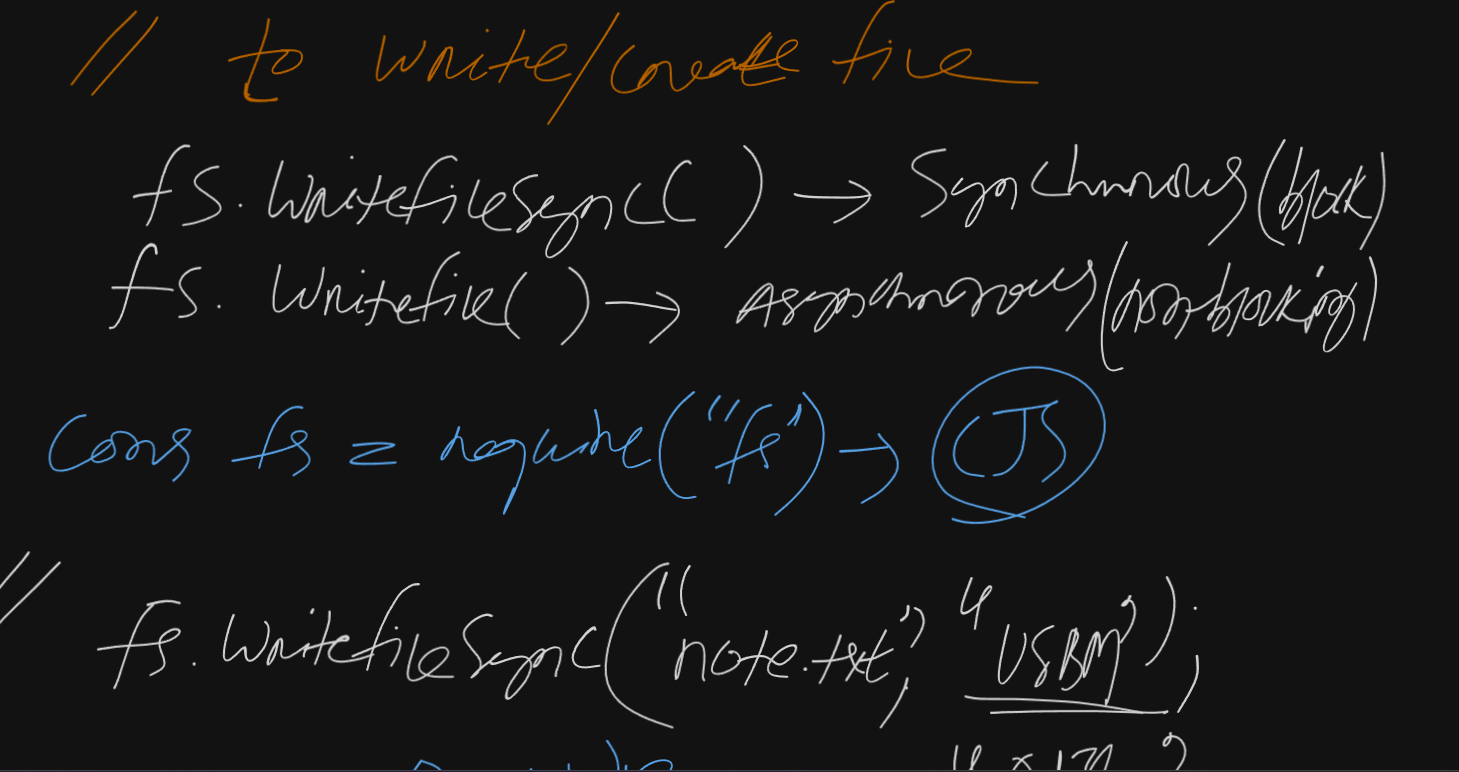 // to write/create file
fs.writefileSync( ) → Synchronous (block)
fs. writefile( ) → Asynchronous (non-blocking)
Cons fs = require("fs") → CJS
// fs.writefileSync("note.txt", "USBM");